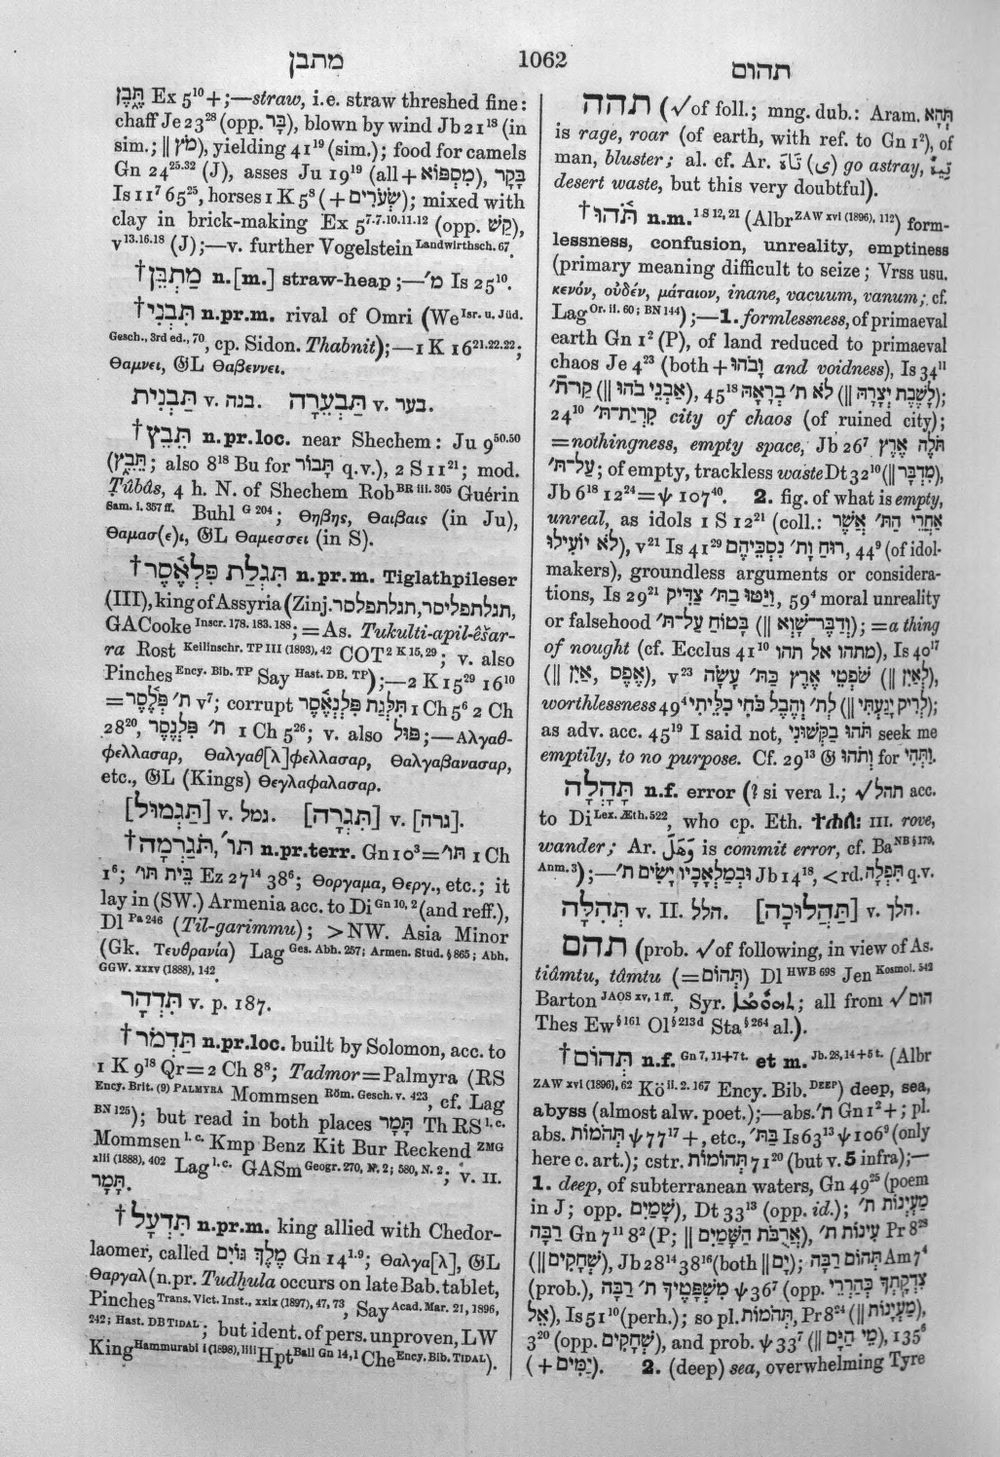 מתבן
1062
תהום
תֶּבֶן Ex 5¹⁰+;—straw, i.e. straw threshed fine:
chaff Je 23²⁸ (opp. בָּר), blown by wind Jb 21¹⁸ (in
sim.; ‖ מֹץ), yielding 41¹⁹ (sim.); food for camels
Gn 24²⁵·³² (J), asses Ju 19¹⁹ (all + מִסְפּוֹא), בָּקָר
Is 11⁷ 65²⁵, horses 1 K 5⁸ (+ שְׂעֹרִים); mixed with
clay in brick-making Ex 5⁷·⁷·¹⁰·¹¹·¹² (opp. קַשׁ),
v¹³·¹⁶·¹⁸ (J);—v. further Vogelstein Landwirthsch. 67.
†מַתְבֵּן n.[m.] straw-heap;—מ׳ Is 25¹⁰.
†תִּבְנִי n.pr.m. rival of Omri (We Isr. u. Jüd.
Gesch., 3rd ed., 70, cp. Sidon. Thabnit);—1 K 16²¹·²²·²²;
Θαμνει, 𝔊L Θαβεννει.
תַּבְנִית v. בנה. תַּבְעֵרָה v. בער.
†תֵּבֵץ n.pr.loc. near Shechem: Ju 9⁵⁰·⁵⁰
(תֵּבֵץ; also 8¹⁸ Bu for תָּבוֹר q.v.), 2 S 11²¹; mod.
Ṭûbâs, 4 h. N. of Shechem Rob BR iii. 305 Guérin
Sam. i. 357 ff. Buhl G 204; Θηβης, Θαιβαις (in Ju),
Θαμασ(ε)ι, 𝔊L Θαμεσσει (in S).
†תִּגְלַת פִּלְאֶסֶר n.pr.m. Tiglathpileser
(III), king of Assyria (Zinj. תגלתפליסר, תגלתפלסר,
GACooke Inscr. 178. 183. 188; = As. Tukulti-apil-êšar-
ra Rost Keilinschr. TP III (1893), 42 COT² K 15, 29; v. also
Pinches Ency. Bib. TP Say Hast. DB. TP);—2 K 15²⁹ 16¹⁰
= ת׳ פְּלֶסֶר v⁷; corrupt תִּלְּגַת פִּלְנְאֶסֶר 1 Ch 5⁶ 2 Ch
28²⁰, ת׳ פִּלְנֶסֶר 1 Ch 5²⁶; v. also פּוּל;—Αλγαθ-
φελλασαρ, Θαλγαθ[λ]φελλασαρ, Θαλγαβανασαρ,
etc., 𝔊L (Kings) Θεγλαφαλασαρ.
[תַּגְמוּל] v. גמל. [תִּגְרָה] v. [גרה].
†תֹּגַרְמָה, תּוֹ׳ n.pr.terr. Gn 10³ = תּוֹ׳ 1 Ch
1⁶; בֵּית תּוֹ׳ Ez 27¹⁴ 38⁶; Θοργαμα, Θεργ., etc.; it
lay in (SW.) Armenia acc. to Di Gn 10, 2 (and reff.),
Dl Pa 246 (Til-garimmu); > NW. Asia Minor
(Gk. Τευθρανία) Lag Ges. Abh. 257; Armen. Stud. § 865; Abh.
GGW. xxxv (1888), 142.
תִּדְהָר v. p. 187.
†תַּדְמֹר n.pr.loc. built by Solomon, acc. to
1 K 9¹⁸ Qr = 2 Ch 8⁸; Tadmor = Palmyra (RS
Ency. Brit. (9) PALMYRA Mommsen Röm. Gesch. v. 423, cf. Lag
BN 125); but read in both places תָּמָר Th RS l.c.
Mommsen l.c. Kmp Benz Kit Bur Reckend ZMG
xlii (1888), 402 Lag l.c. GASm Geogr. 270, N. 2; 580, N. 2; v. II.
תָּמָר.
†תִּדְעָל n.pr.m. king allied with Chedor-
laomer, called מֶלֶךְ גּוֹיִם Gn 14¹·⁹; Θαλγα[λ], 𝔊L
Θαργαλ (n.pr. Tudḫula occurs on late Bab. tablet,
Pinches Trans. Vict. Inst., xxix (1897), 47, 73, Say Acad. Mar. 21, 1896,
242; Hast. DB TIDAL; but ident. of pers. unproven, LW
King Hammurabi i (1898), liii Hpt Ball Gn 14, 1 Che Ency. Bib. TIDAL).
תהה (√ of foll.; mng. dub.: Aram. תְּהָא
is rage, roar (of earth, with ref. to Gn 1²), of
man, bluster; al. cf. Ar. تَاهَ (ى) go astray, تِيهٌ
desert waste, but this very doubtful).
†תֹּהוּ n.m. 1 S 12, 21 (Albr ZAW xvi (1896), 112) form-
lessness, confusion, unreality, emptiness
(primary meaning difficult to seize; Vrss usu.
κενόν, οὐδέν, μάταιον, inane, vacuum, vanum; cf.
Lag Or. ii. 60; BN 144);—1. formlessness, of primaeval
earth Gn 1² (P), of land reduced to primaeval
chaos Je 4²³ (both + וָבֹהוּ and voidness), Is 34¹¹
קַו־ת׳ (‖ אַבְנֵי בֹהוּ), 45¹⁸ לֹא ת׳ בְרָאָהּ (‖ לָשֶׁבֶת יְצָרָהּ);
24¹⁰ קִרְיַת־ת׳ city of chaos (of ruined city);
= nothingness, empty space, Jb 26⁷ תֹּלֶה אֶרֶץ
עַל־ת׳; of empty, trackless waste Dt 32¹⁰ (‖ מִדְבָּר),
Jb 6¹⁸ 12²⁴ = ψ 107⁴⁰. 2. fig. of what is empty,
unreal, as idols 1 S 12²¹ (coll.: אַחֲרֵי הַתּ׳ אֲשֶׁר
לֹא יוֹעִילוּ), v²¹ Is 41²⁹ רוּחַ וָת׳ נִסְכֵּיהֶם, 44⁹ (of idol-
makers), groundless arguments or considera-
tions, Is 29²¹ וַיַּטּוּ בַתּ׳ צַדִּיק, 59⁴ moral unreality
or falsehood בָּטוֹחַ עַל־תּ׳ (‖ וְדַבֶּר־שָׁוְא); = a thing
of nought (cf. Ecclus 41¹⁰ מתהו אל תהו), Is 40¹⁷
(‖ אֶפֶס, אַיִן), v²³ שֹׁפְטֵי אֶרֶץ כַּתּ׳ עָשָׂה (‖ לְאַיִן),
worthlessness 49⁴ לְת׳ וְהֶבֶל כֹּחִי כִלֵּיתִי (‖ לְרִיק יָגַעְתִּי);
as adv. acc. 45¹⁹ I said not, תֹּהוּ בַקְּשׁוּנִי seek me
emptily, to no purpose. Cf. 29¹³ 𝔊 וְתֹהוּ for וַתְּהִי.
תָּהֳלָה n.f. error (? si vera l.; √ תהל acc.
to Di Lex. Æth. 522, who cp. Eth. ተሀለ: III. rove,
wander; Ar. وَهَلَ is commit error, cf. Ba NB § 179,
Anm. 3);—וּבְמַלְאָכָיו יָשִׂים ת׳ Jb 14¹⁸, < rd. תִּפְלָה q.v.
תְּהִלָּה v. II. הלל. [תַּהֲלוּכָה] v. הלך.
תהם (prob. √ of following, in view of As.
tiâmtu, tâmtu (= תְּהוֹם) Dl HWB 698 Jen Kosmol. 542
Barton JAOS xv, 1 ff., Syr. ܬܗܘܡܐ; all from √ הום
Thes Ew § 161 Ol § 213 d Sta § 264 al.).
†תְּהוֹם n.f. Gn 7, 11 + 7 t. et m. Jb. 28, 14 + 5 t. (Albr
ZAW xvi (1896), 62 Kö ii. 2. 167 Ency. Bib. DEEP) deep, sea,
abyss (almost alw. poet.);—abs. ת׳ Gn 1² +; pl.
abs. תְּהֹמוֹת ψ 77¹⁷ +, etc., בַּתּ׳ Is 63¹³ ψ 106⁹ (only
here c. art.); cstr. תְּהוֹמוֹת 71²⁰ (but v. 5 infra);—
1. deep, of subterranean waters, Gn 49²⁵ (poem
in J; opp. שָׁמַיִם), Dt 33¹³ (opp. id.); מַעְיְנוֹת ת׳
רַבָּה Gn 7¹¹ 8² (P; ‖ אֲרֻבֹּת הַשָּׁמַיִם), עִינוֹת ת׳ Pr 8²⁸
(‖ שְׁחָקִים), Jb 28¹⁴ 38¹⁶ (both ‖ יָם); תְּהוֹם רַבָּה Am 7⁴
(prob.), מִשְׁפָּטֶיךָ ת׳ רַבָּה ψ 36⁷ (opp. צִדְקָתְךָ כְּהַרְרֵי
אֵל), Is 51¹⁰ (perh.); so pl. תְּהֹמוֹת, Pr 8²⁴ (‖ מַעְיָנוֹת),
3²⁰ (opp. שְׁחָקִים), and prob. ψ 33⁷ (‖ מֵי הַיָּם), 135⁶
(+ יַמִּים). 2. (deep) sea, overwhelming Tyre